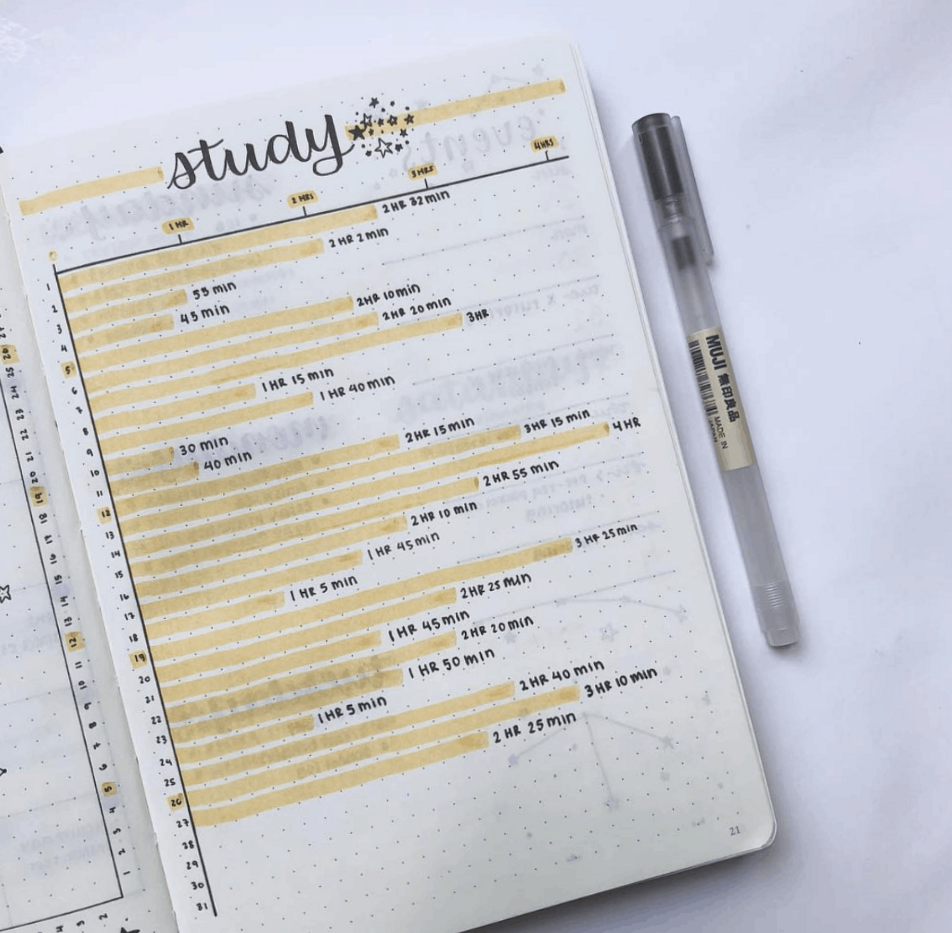 study
0 1 HR 2 HRS 3 HRS 4 HRS
1 2 HR 32 min
2 2 HR 2 min
3 55 min
4 45 min
5 2HR 10min
6 2HR 20 min
7 3HR
8 1 HR 15 min
9 1 HR 40 min
10 30 min
11 40 min
12 2HR 15 min
13 3HR 15 min
14 4 HR
15 2 HR 55 min
16 2 HR 10 min
17 1 HR 45 min
18 1 HR 5 min
19 3 HR 25 min
20 2HR 25 min
21 1 HR 45 min
22 2HR 20 min
23 1 HR 50 min
24 1 HR 5 min
25 2 HR 40 min
26 3 HR 10 min
27 2 HR 25 min
28
29
30
31
21
MUJI 無印良品
MADE IN
JAPAN